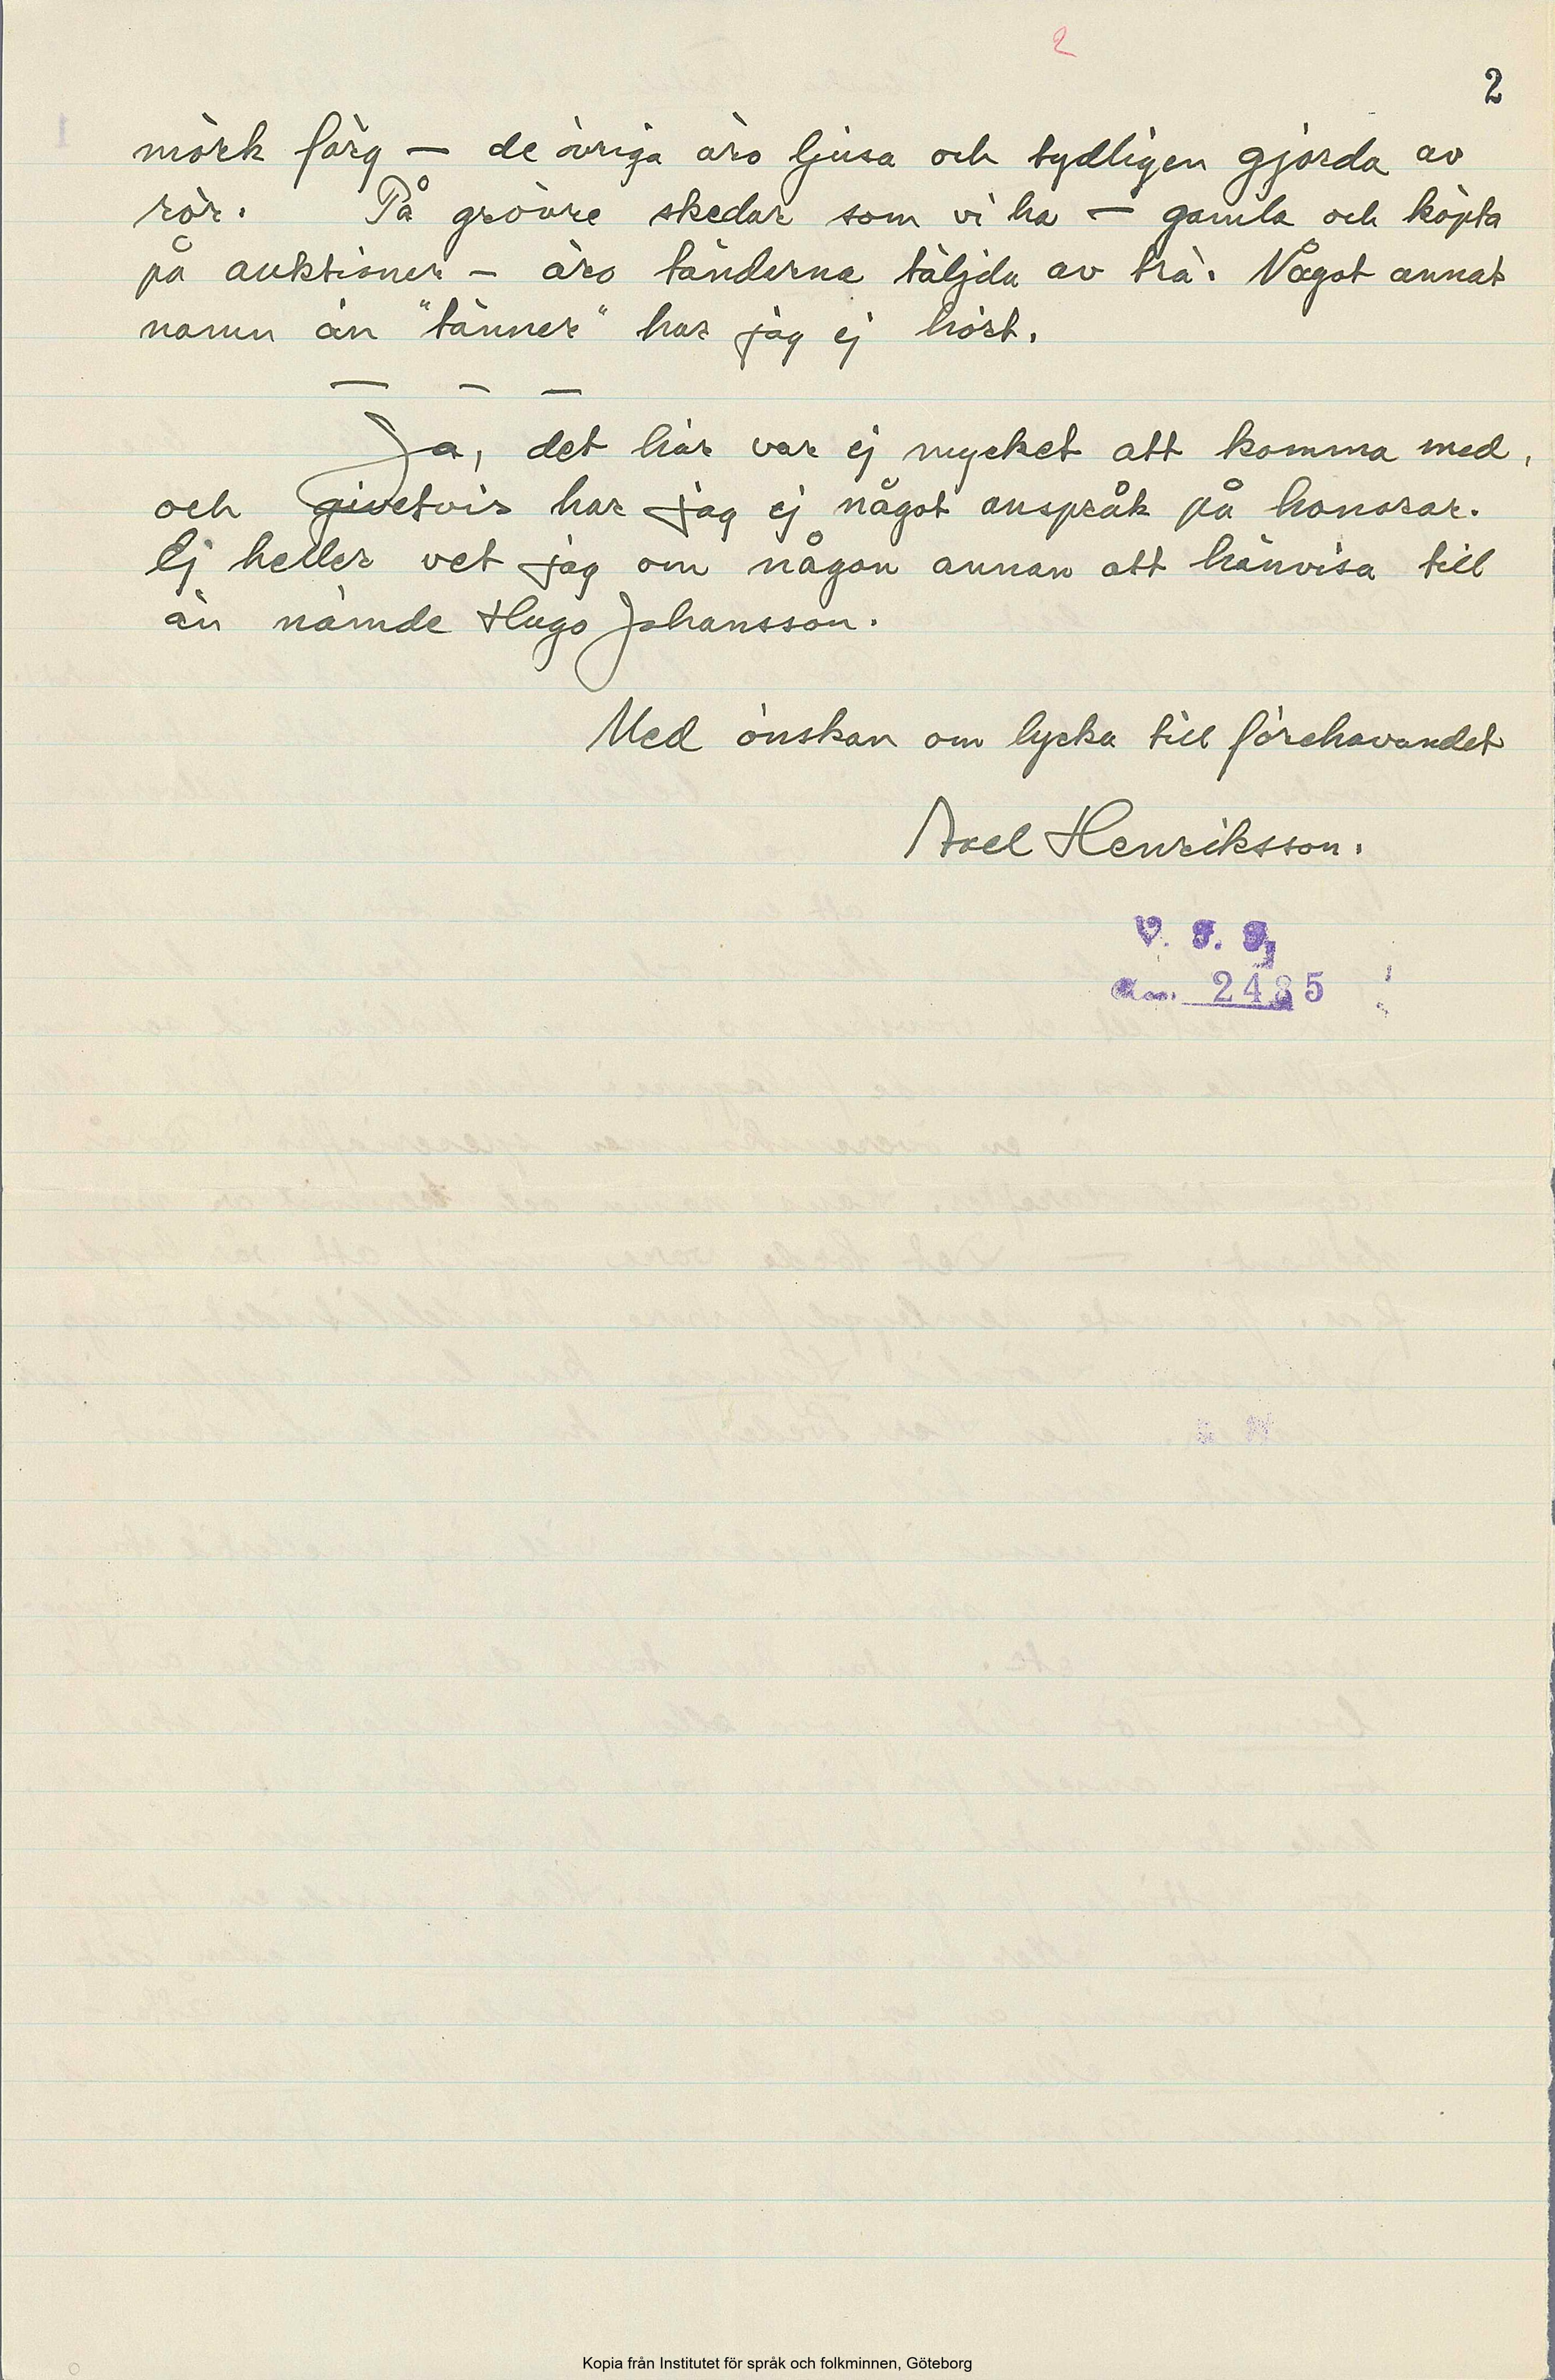 2
2
mörk färg — de övriga äro ljusa och tydligen gjorda av
rör. På grövre skedar som vi ha — gamla och köpta
på auktioner — äro tänderna täljda av trä. Något annat
namn än "tänner" har jag ej hört.
— — —
Ja, det här var ej mycket att komma med,
och givetvis har jag ej något anspråk på honorar.
Ej heller vet jag om någon annan att hänvisa till
än nämde Hugo Johansson.
Med önskan om lycka till förehavandet
Axel Henriksson.
2485
Kopia från Institutet för språk och folkminnen, Göteborg